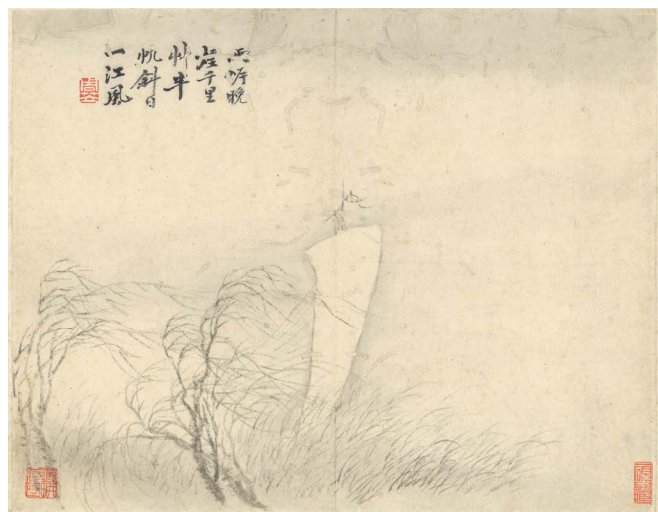 兩岸晚
煙千里
艸半
帆斜日
一江風